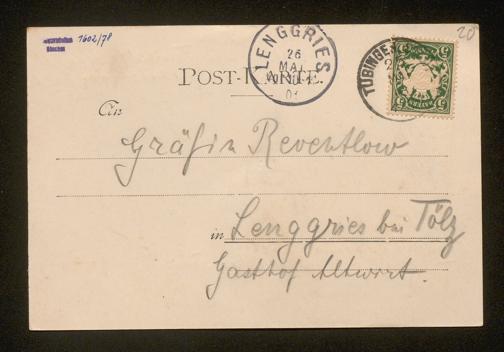 1602/78
20
LENGGRIES
26
MAI
01
TÜBINGEN
POST-KARTE.
An
Gräfin Reventlow
in Lenggries bei Tölz
Gasthof Altwirt.
5
5
BAYERN